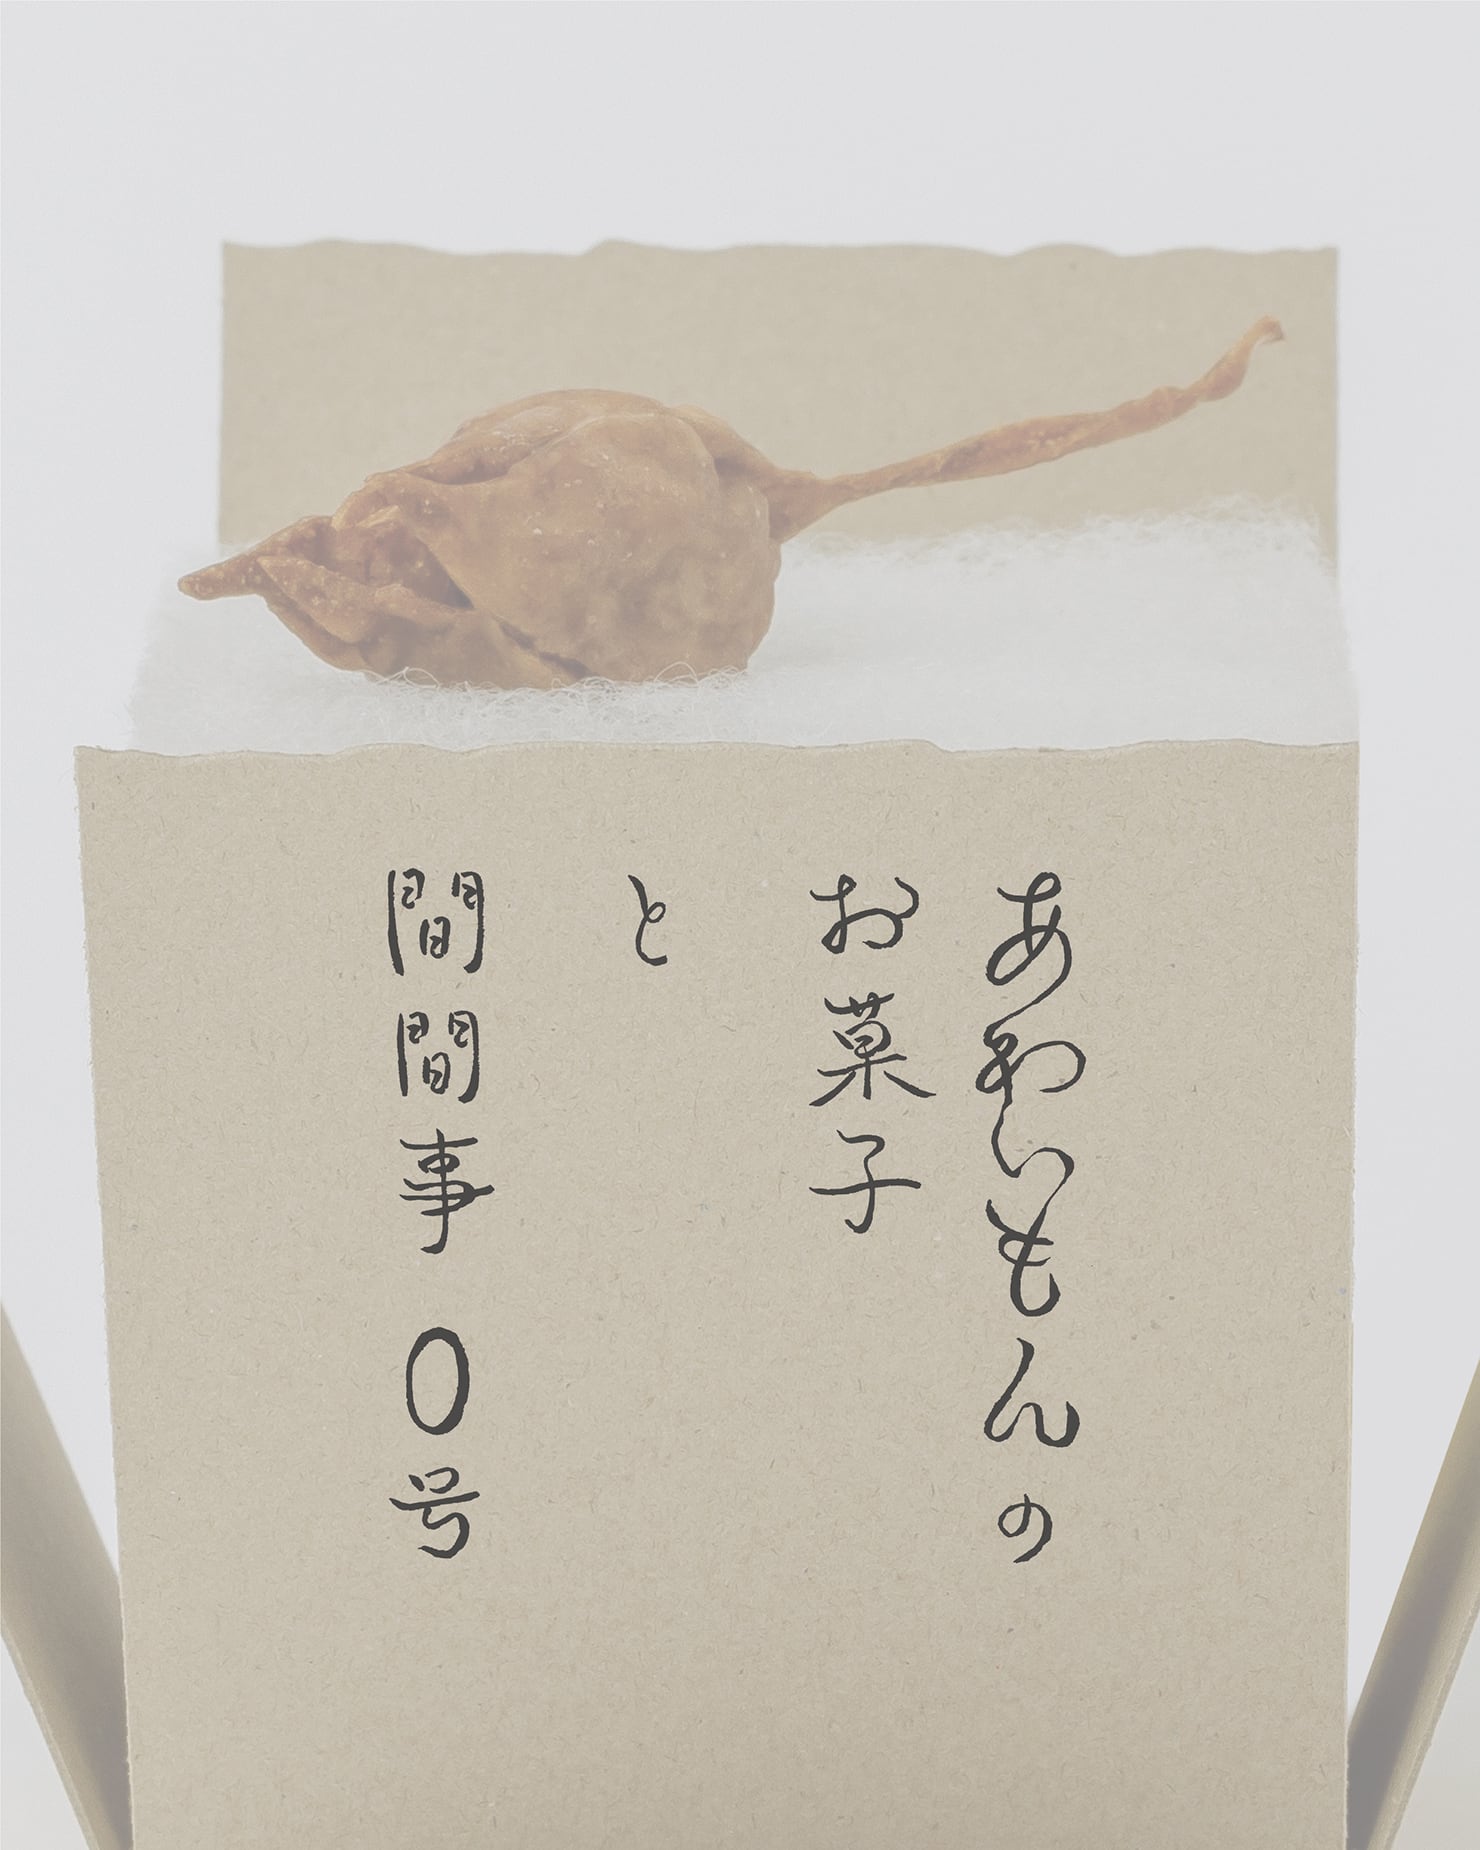 あわいもんの
お菓子
と
間間事 0号